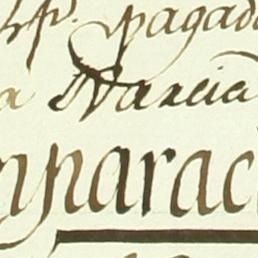 pagad
a Narcia
mparac